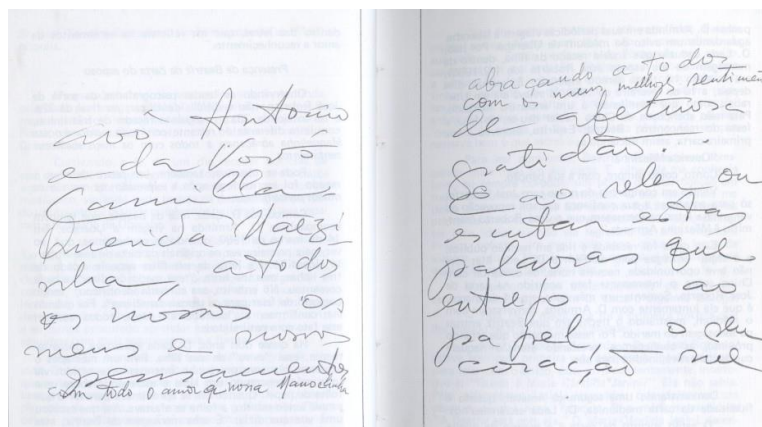 avô Antonio
e da Vovó
Camilla.
Querida
nha, a todos
os nossos os
meus e nossos
pensamentos
com todo o amor
abraçando a todos
com os meus melhores sentimen
de afetuosa
gratidão...
Se ao reler ou
escutar estas
palavras que
entrego ao
papel, o seu
coração me